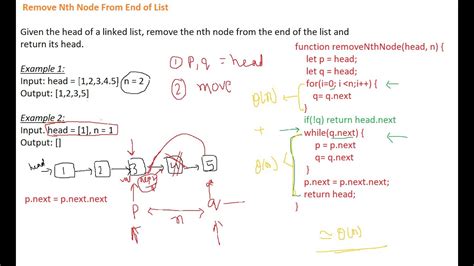 Remove Nth Node From End of List
Given the head of a linked list, remove the nth node from the end of the list and
return its head.
Example 1:
Input: head = [1,2,3,4,5] n = 2
Output: [1,2,3,5]
Example 2:
Input. head = [1], n = 1
Output: []
① p, q = head
② move
head
1
2
3
4
5
p.next = p.next.next
p
n
q
function removeNthNode(head, n) {
let p = head;
let q = head;
for(i=0; i <n;i++) {
q= q.next
}
if(!q) return head.next
while(q.next) {
p = p.next
q = q.next
}
p.next = p.next.next;
return head;
}
θ(n)
+
θ(n)
≃ θ(n)